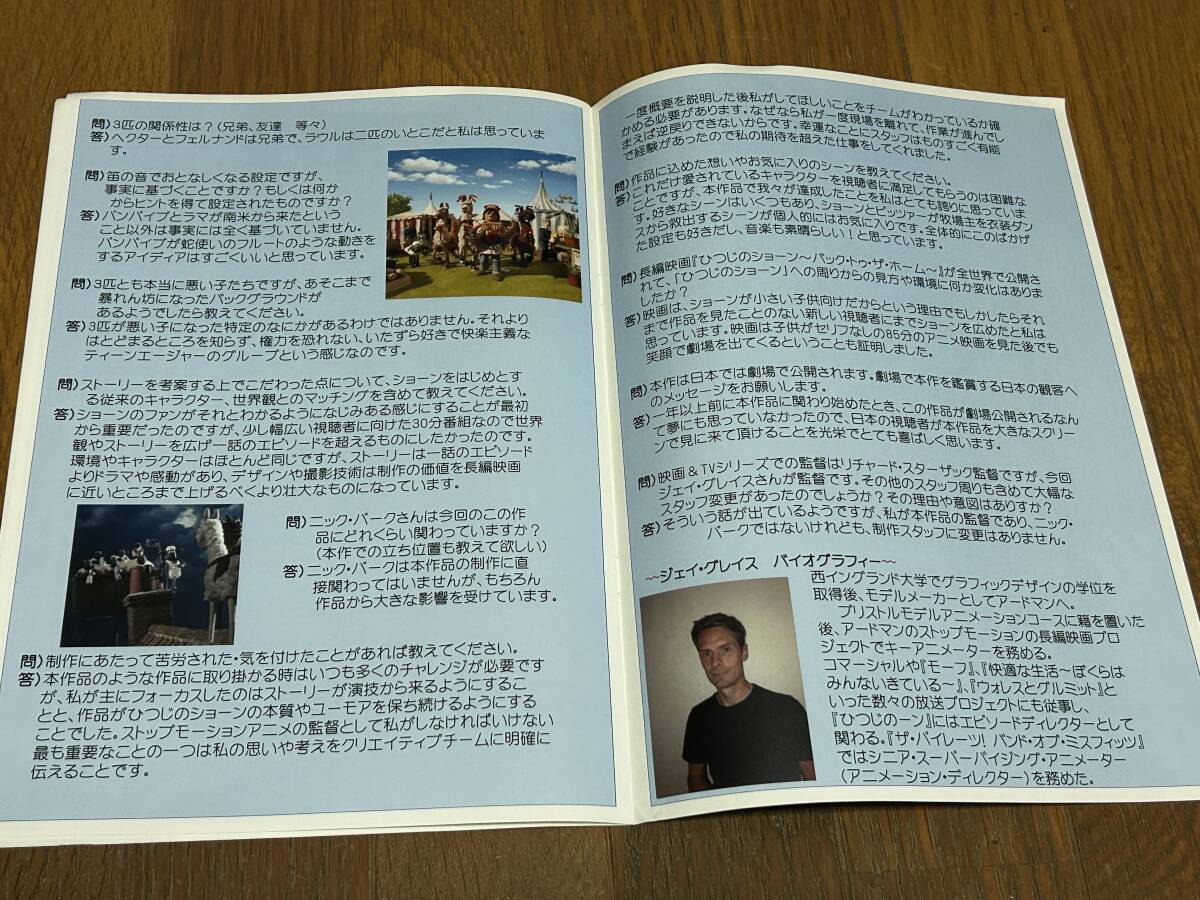 問)3匹の関係性は？(兄弟、友達　等々)
答)ヘクターとフェルナンドは兄弟で、ラウルは二匹のいとこだと私は思っていま
す。
問)笛の音でおとなしくなる設定ですが、
事実に基づくことですか？もしくは何か
からヒントを得て設定されたものですか？
答)パンパイプとラマが南米から来たという
こと以外は事実には全く基づいていません。
パンパイプが蛇使いのフルートのような動きを
するアイディアはすごくいいと思っています。
問)3匹とも本当に悪い子たちですが、あそこまで
暴れん坊になったバックグラウンドが
あるようでしたら教えてください。
答)3匹が悪い子になった特定のなにかがあるわけではありません。それより
はとどまるところを知らず、権力を恐れない、いたずら好きで快楽主義な
ティーンエージャーのグループという感じなのです。
問)ストーリーを考案する上でこだわった点について、ショーンをはじめとす
る従来のキャラクター、世界観とのマッチングを含めて教えてください。
答)ショーンのファンがそれとわかるようになじみある感じにすることが最初
から重要だったのですが、少し幅広い視聴者に向けた30分番組なので世界
観やストーリーを広げ一話のエピソードを超えるものにしたかったのです。
環境やキャラクターはほとんど同じですが、ストーリーは一話のエピソード
よりドラマや感動があり、デザインや撮影技術は制作の価値を長編映画
に近いところまで上げるべくより壮大なものになっています。
問)ニック・パークさんは今回のこの作
品にどれくらい関わっていますか？
(本作での立ち位置も教えて欲しい)
答)ニック・パークは本作品の制作に直
接関わってはいませんが、もちろん
作品から大きな影響を受けています。
問)制作にあたって苦労された・気を付けたことがあれば教えてください。
答)本作品のような作品に取り掛かる時はいつも多くのチャレンジが必要です
が、私が主にフォーカスしたのはストーリーが演技から来るようにするこ
とと、作品がひつじのショーンの本質やユーモアを保ち続けるようにする
ことでした。ストップモーションアニメの監督として私がしなければいけない
最も重要なことの一つは私の思いや考えをクリエイティブチームに明確に
伝えることです。
一度概要を説明した後私がしてほしいことをチームがわかっているか確
かめる必要があります。なぜなら私が一度現場を離れて、作業が進んでし
まえば逆戻りできないからです。幸運なことにスタッフはものすごく有能
で経験があったので私の期待を超えた仕事をしてくれました。
問)作品に込めた想いやお気に入りのシーンを教えてください。
答)これだけ愛されているキャラクターを視聴者に満足してもらうのは困難な
ことですが、本作品で我々が達成したことを私はとても誇りに思っていま
す。好きなシーンはいくつもあり、ショーンとビッツァーが牧場主を衣装ダン
スから救出するシーンが個人的にはお気に入りです。全体的にこのばかげ
た設定も好きだし、音楽も素晴らしい！と思っています。
問)長編映画『ひつじのショーン～バック・トゥ・ザ・ホーム～』が全世界で公開さ
れて、「ひつじのショーン」への周りからの見方や環境に何か変化はありま
したか？
答)映画は、ショーンが小さい子供向けだからという理由でもしかしたらそれ
まで作品を見たことのない新しい視聴者にまでショーンを広めたと私は
思っています。映画は子供がセリフなしの85分のアニメ映画を見た後でも
笑顔で劇場を出てくるということも証明しました。
問)本作は日本では劇場で公開されます。劇場で本作を鑑賞する日本の観客へ
のメッセージをお願いします。
答)一年以上前に本作品に関わり始めたとき、この作品が劇場公開されるなん
て夢にも思っていなかったので、日本の視聴者が本作品を大きなスクリー
ンで見に来て頂けることを光栄でとても喜ばしく思います。
問)映画＆TVシリーズでの監督はリチャード・スターザック監督ですが、今回
ジェイ・グレイスさんが監督です。その他のスタッフ周りも含めて大幅な
スタッフ変更があったのでしょうか？その理由や意図はありますか？
答)そういう話が出ているようですが、私が本作品の監督であり、ニック・
パークではないけれども、制作スタッフに変更はありません。
～ジェイ・グレイス　バイオグラフィー～
西イングランド大学でグラフィックデザインの学位を
取得後、モデルメーカーとしてアードマンへ。
ブリストルモデルアニメーションコースに籍を置いた
後、アードマンのストップモーションの長編映画プロ
ジェクトでキーアニメーターを務める。
コマーシャルや『モーフ』、『快適な生活～ぼくらは
みんないきている～』、『ウォレスとグルミット』と
いった数々の放送プロジェクトにも従事し、
『ひつじのーン』にはエピソードディレクターとして
関わる。『ザ・パイレーツ! バンド・オブ・ミスフィッツ』
ではシニア・スーパーバイジング・アニメーター
(アニメーション・ディレクター)を務めた。